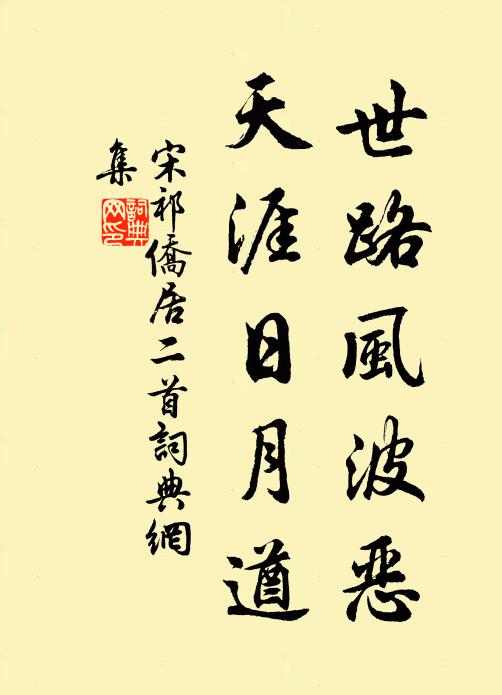 世路風波惡
天涯日月遒
宋祁僑居二首詞典網
集
詞典
网印